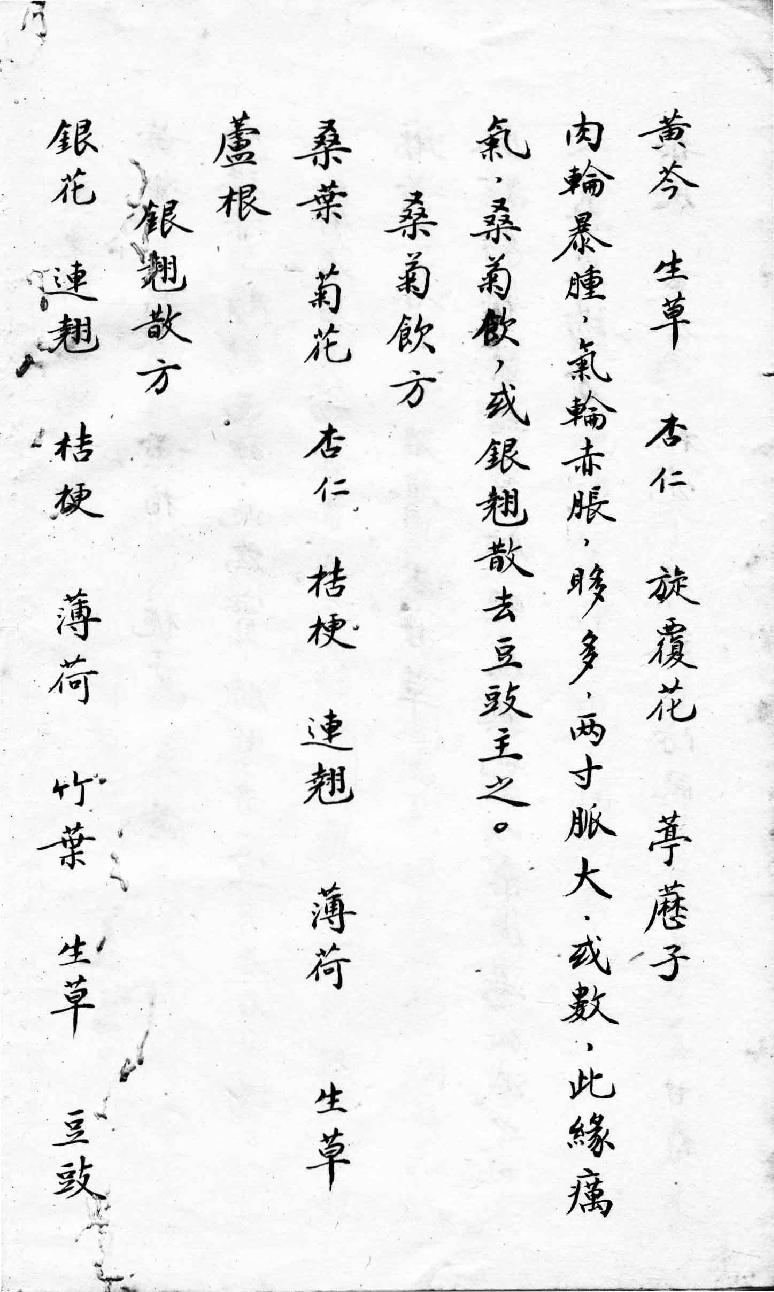 黃芩 生草 杏仁 旋覆花 葶藶子
肉輪暴腫，氣輪赤脹，眵多，两寸脈大．或數，此緣癘
氣，桑菊飲，或銀翹散去豆豉主之。
桑菊飲方
桑葉 菊花 杏仁 桔梗 連翹 薄荷 生草
蘆根
銀翹散方
銀花 連翹 桔梗 薄荷 竹葉 生草 豆豉